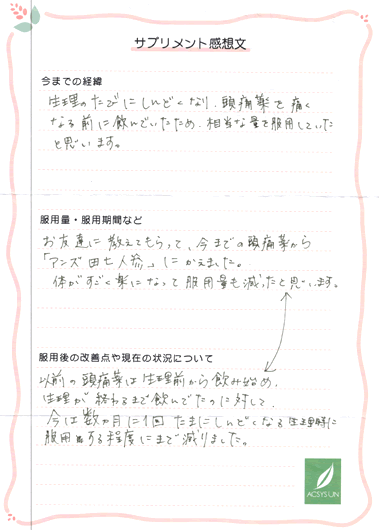 サプリメント感想文
今までの経緯
生理のたびにしんどくなり、頭痛薬を痛く
なる前に飲んでいたため、相当な量を服用していた
と思います。
服用量・服用期間など
お友達に教えてもらって、今までの頭痛薬から
「アンズ田七人参」にかえました。
体がすごく楽になって服用量も減ったと思います。
服用後の改善点や現在の状況について
以前の頭痛薬は生理前から飲み始め、
生理が終わるまで飲んでいたのに対して、
今は数カ月に1回たまにしんどくなる生理時に
服用する程度にまで減りました。
ACSYSUN